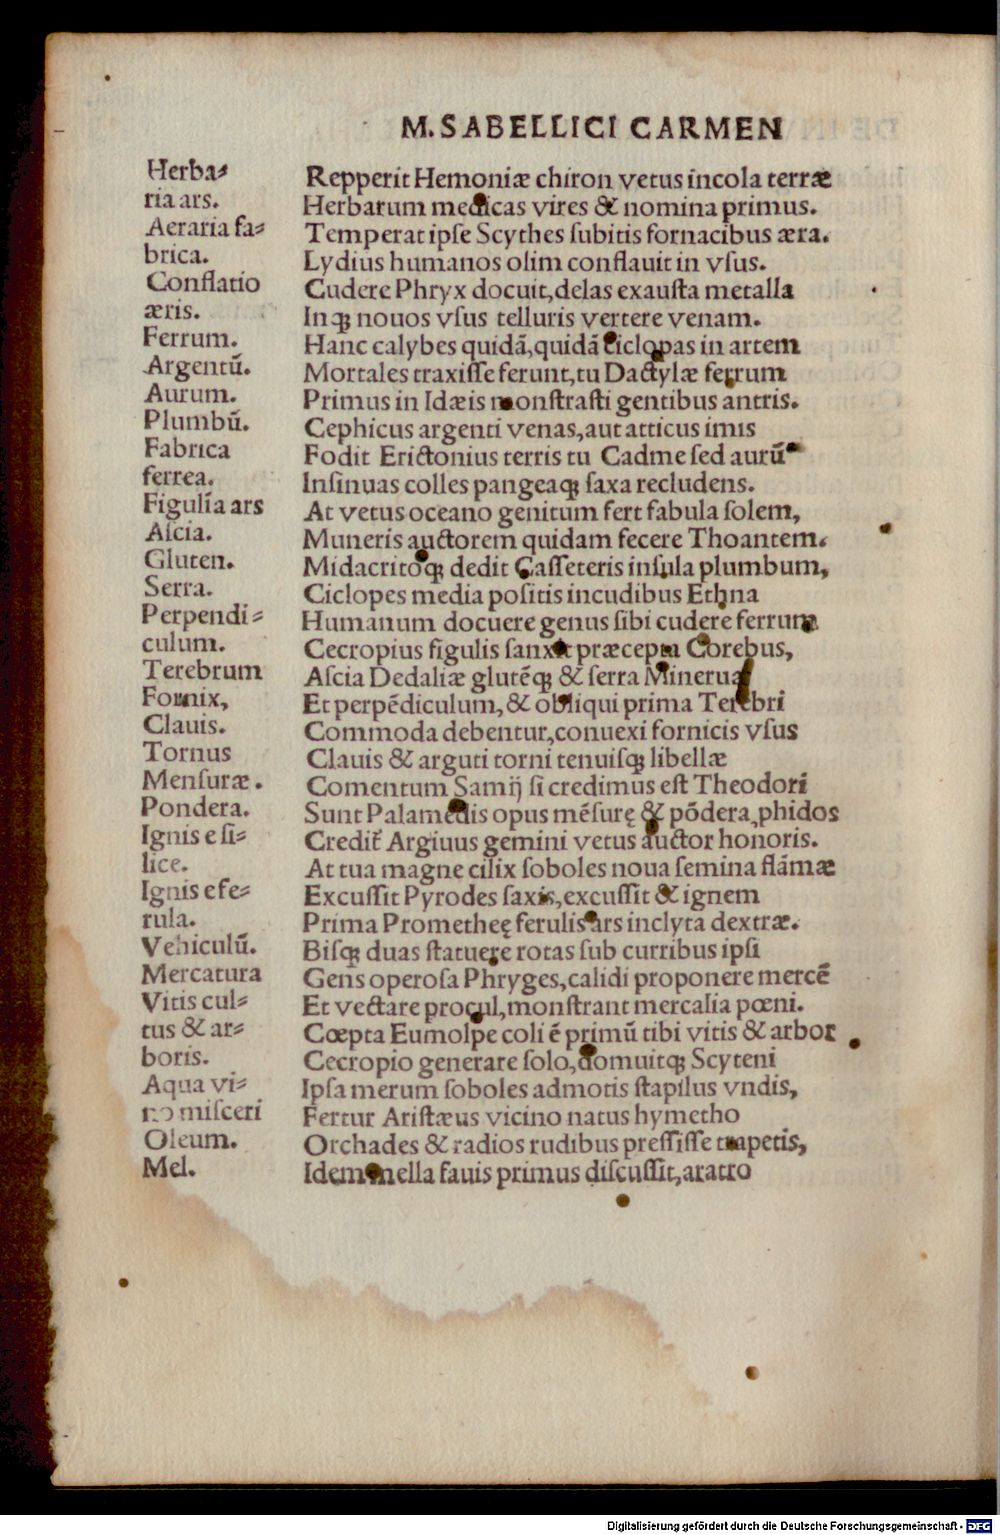 M. SABELLICI CARMEN
Herba⸗
ria ars.
Aeraria fa⸗
brica.
Conflatio
æris.
Ferrum.
Argentū.
Aurum.
Plumbū.
Fabrica
ferrea.
Figulia ars
Aſcia.
Gluten.
Serra.
Perpendi⸗
culum.
Terebrum
Fornix,
Clauis.
Tornus
Menſuræ.
Pondera.
Ignis e ſi⸗
lice.
Ignis e fe⸗
rula.
Vehiculū.
Mercatura
Vitis cul⸗
tus & ar⸗
boris.
Aqua vi⸗
no miſceri
Oleum.
Mel.
Repperit Hemoniæ chiron vetus incola terræ
Herbarum medicas vires & nomina primus.
Temperat ipſe Scythes ſubitis fornacibus æra.
Lydius humanos olim conflauit in vſus.
Cudere Phryx docuit, delas exauſta metalla
Inqꝫ nouos vſus telluris vertere venam.
Hanc calybes quidā, quidā ciclopas in artem
Mortales traxiſſe ferunt, tu Dactylæ ferrum
Primus in Idæis monſtraſti gentibus antris.
Cephicus argenti venas, aut atticus imis
Fodit Erictonius terris tu Cadme ſed aurū
Inſinuas colles pangeaqꝫ ſaxa recludens.
At vetus oceano genitum fert fabula ſolem,
Muneris auctorem quidam fecere Thoantem.
Midacritoqꝫ dedit Caſſeteris inſula plumbum,
Ciclopes media poſitis incudibus Ethna
Humanum docuere genus ſibi cudere ferrum.
Cecropius figulis ſanxit præcepta Corebus,
Aſcia Dedaliæ glutēqꝫ & ſerra Mineruæ
Et perpēdiculum, & obliqui prima Terebri
Commoda debentur, conuexi fornicis vſus
Clauis & arguti torni tenuiſqꝫ libellæ
Comentum Samij ſi credimus eſt Theodori
Sunt Palamedis opus mēſurę & pōdera, phidos
Credit̄ Argiuus gemini vetus auctor honoris.
At tua magne cilix ſoboles noua ſemina flāmæ
Excuſſit Pyrodes ſaxis, excuſſit & ignem
Prima Prometheę ferulis ars inclyta dextræ.
Biſqꝫ duas ſtatuere rotas ſub curribus ipſi
Gens operoſa Phryges, calidi proponere mercē
Et vectare procul, monſtrant mercalia pœni.
Cœpta Eumolpe coli ē primū tibi vitis & arbor
Cecropio generare ſolo, domuitqꝫ Scyteni
Ipſa merum ſoboles admotis ſtapilus vndis,
Fertur Ariſtæus vicino natus hymetho
Orchades & radios rudibus preſſiſſe trapetis,
Idem mella fauis primus diſcuſſit, aratro
Digitalisierung gefördert durch die Deutsche Forschungsgemeinschaft - DFG